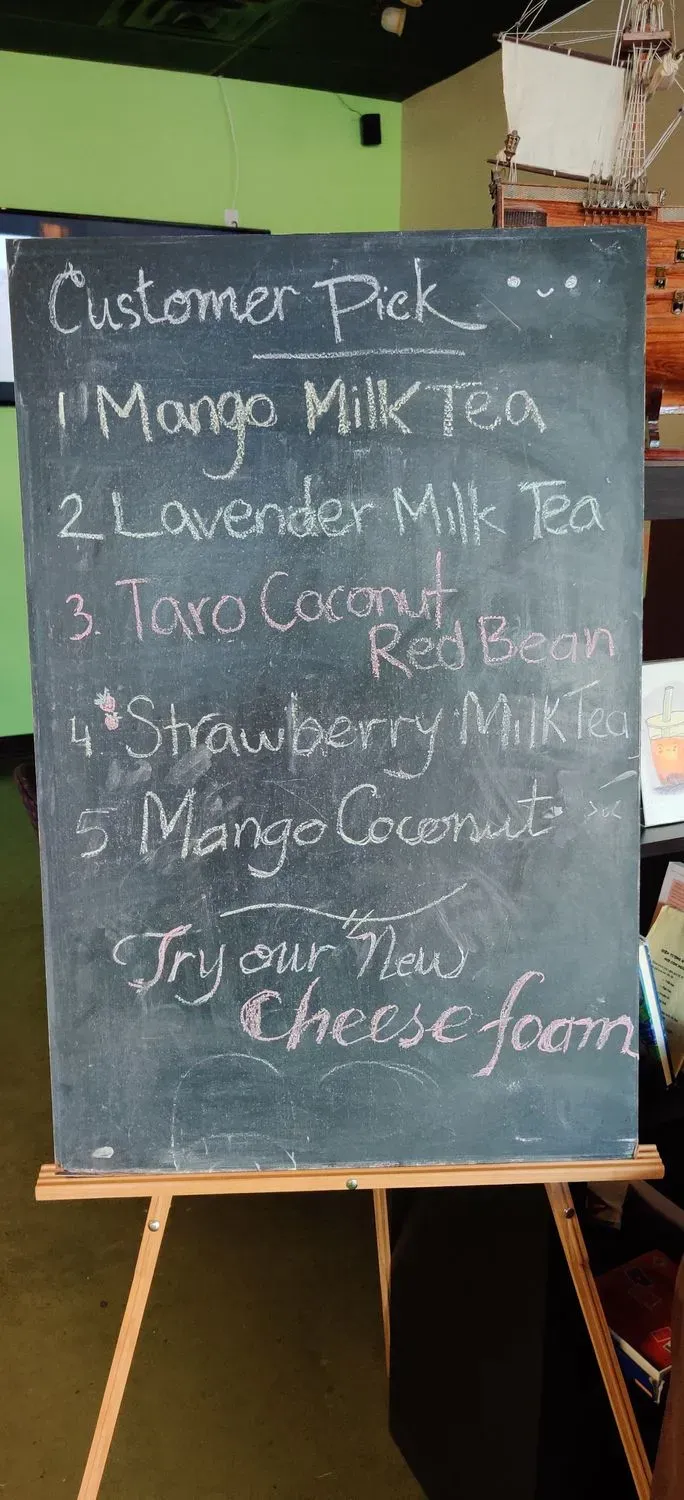 Customer Pick
1 Mango Milk Tea
2 Lavender Milk Tea
3. Taro Coconut
Red Bean
4 Strawberry Milk Tea
5 Mango Coconut
Try our New
Cheese foam